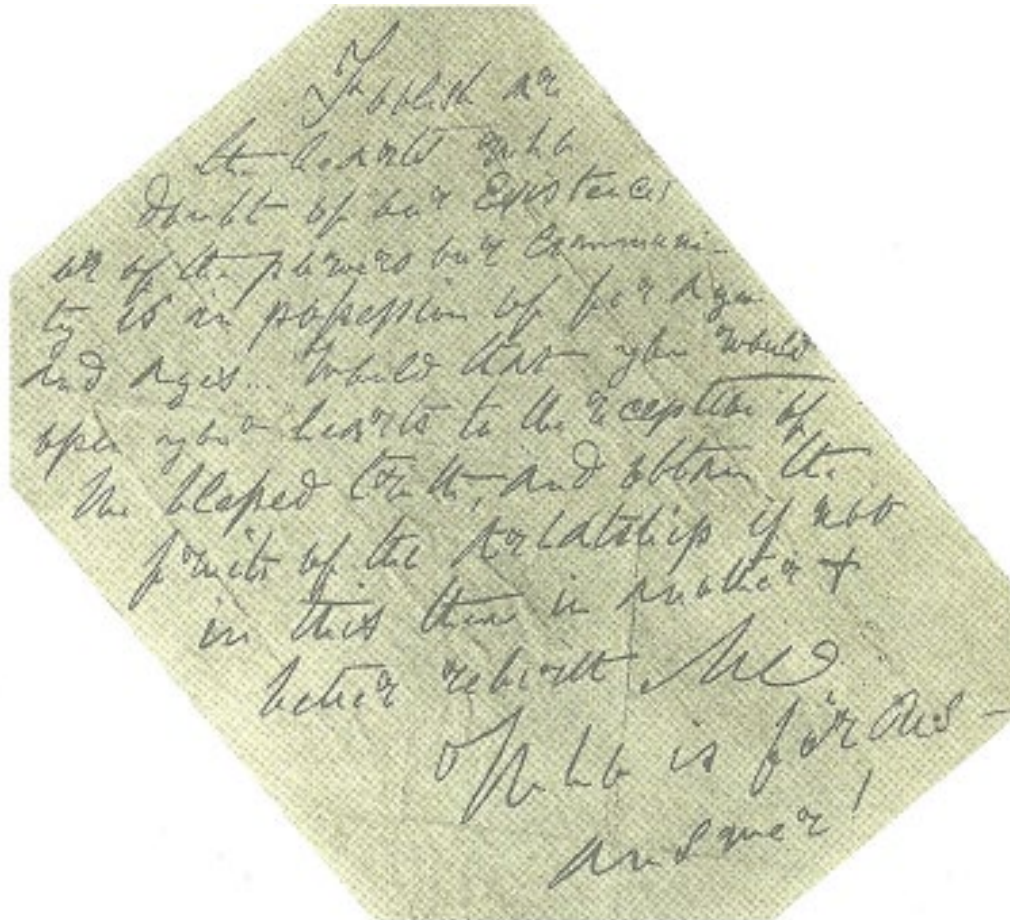 Foolish are
the hearts who
doubt of our Existence!
or of the powers our Communi-
ty is in possession of for ages
and ages... Would that you would
open your hearts to the reception of
the blessed truth, and obtain the
fruits of the Arhatship if not
in this then in another +
better rebirth
Who is for us—
answer!